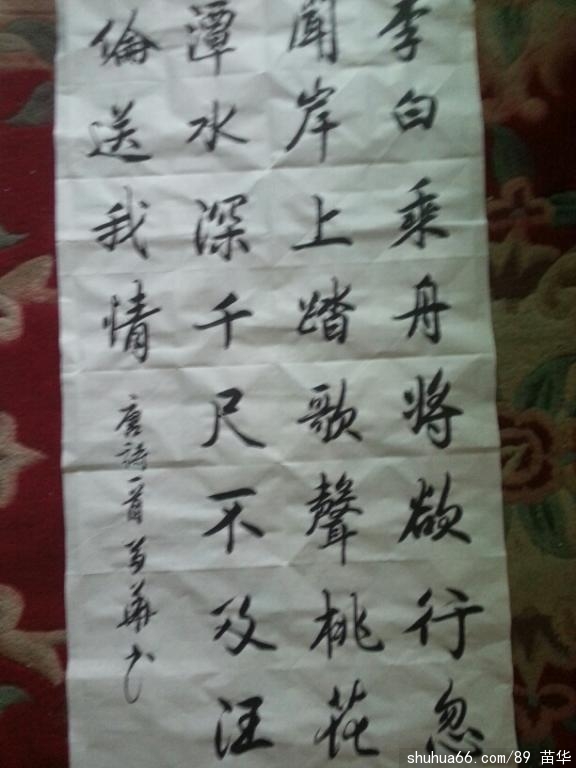 李白乘舟将欲行忽
闻岸上踏歌聲桃花
潭水深千尺不及汪
倫送我情
唐詩一首苗華书
shuhua66.com/89 苗华